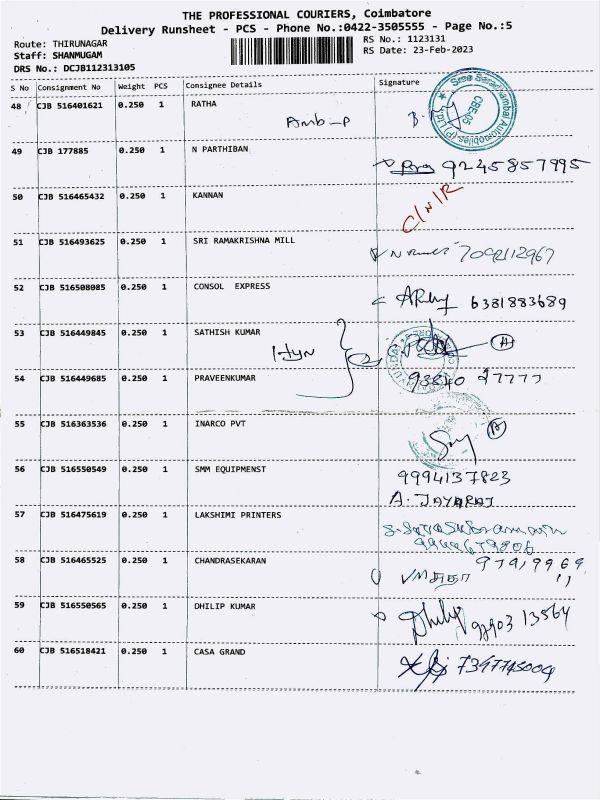 THE PROFESSIONAL COURIERS, Coimbatore
Delivery Runsheet - PCS - Phone No.:0422-3505555 - Page No.:5
Route: THIRUNAGAR
RS No.: 1123131
Staff: SHANMUGAM
RS Date: 23-Feb-2023
DRS No.: DCJB112313105
S No Consignment No Weight PCS Consignee Details Signature
48 CJB 516401621 0.250 1 RATHA
Amb-P
Sree Saradhambal Automobiles (P) LTD
CBE-05
49 CJB 177885 0.250 1 N PARTHIBAN
9245857995
50 CJB 516465432 0.250 1 KANNAN
C/N/R
51 CJB 516493625 0.250 1 SRI RAMAKRISHNA MILL
7092112967
52 CJB 516508085 0.250 1 CONSOL EXPRESS
6381883689
53 CJB 516449845 0.250 1 SATHISH KUMAR
Hyn
A
54 CJB 516449685 0.250 1 PRAVEENKUMAR
93840 97777
55 CJB 516363536 0.250 1 INARCO PVT
56 CJB 516550549 0.250 1 SMM EQUIPMENST
9994137823
A. JAYARAJ
57 CJB 516475619 0.250 1 LAKSHIMI PRINTERS
58 CJB 516465525 0.250 1 CHANDRASEKARAN
59 CJB 516550565 0.250 1 DHILIP KUMAR
Dhilip
60 CJB 516518421 0.250 1 CASA GRAND
7397745004